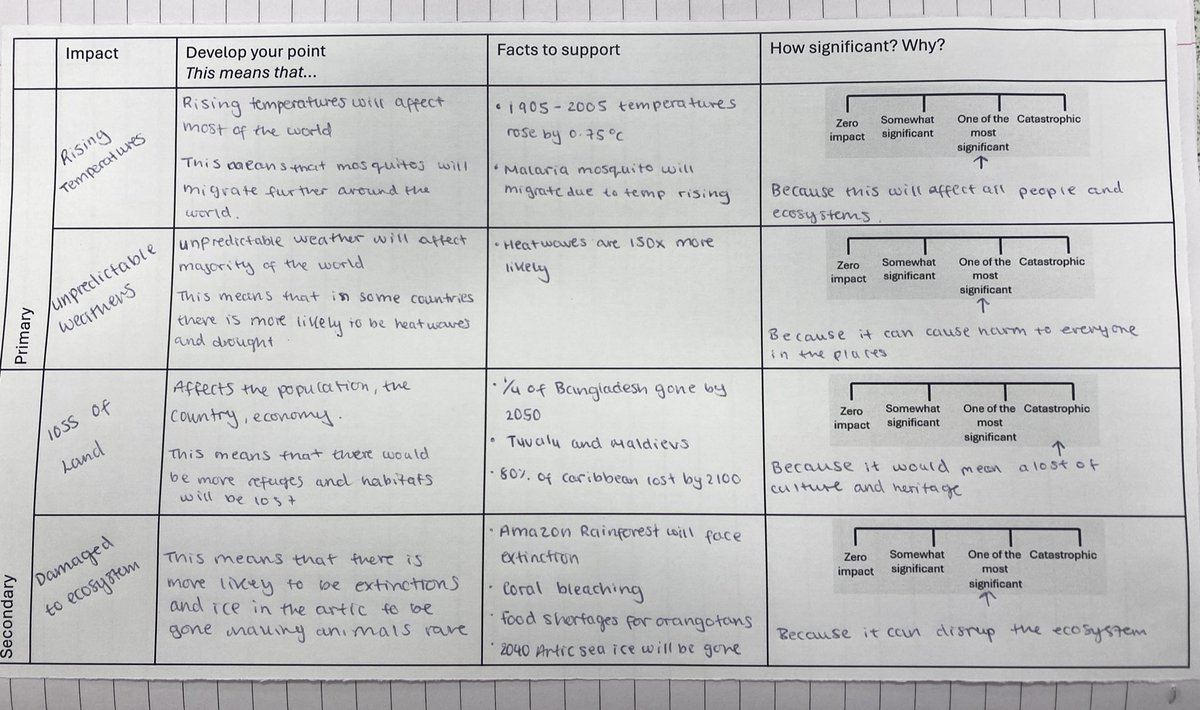 Impact
Develop your point
This means that...
Facts to support
How significant? Why?
Primary
Rising
Temperatures
Rising temperatures will affect
most of the world
This means that mosquitos will
migrate further around the
world.
• 1905-2005 temperatures
rose by 0.75°C
• Malaria mosquito will
migrate due to temp rising
Zero
impact
Somewhat
significant
One of the
most
significant
Catastrophic
Because this will affect all people and
ecosystems.
unpredictable
weathers
unpredictable weather will affect
majority of the world
This means that in some countries
there is more likely to be heatwaves
and drought
• Heatwaves are 150x more
likely
Zero
impact
Somewhat
significant
One of the
most
significant
Catastrophic
Because it can cause harm to everyone
in the places
Secondary
loss of
Land
Affects the population, the
country, economy.
This means that there would
be more refuges and habitats
will be lost
• ¼ of Bangladesh gone by
2050
• Tuvalu and Maldievs
• 80% of Caribbean lost by 2100
Zero
impact
Somewhat
significant
One of the
most
significant
Catastrophic
Because it would mean a lost of
culture and heritage
Damaged
to ecosystem
This means that there is
more likely to be extinctions
and ice in the artic to be
gone making animals rare
• Amazon Rainforest will face
extinction
• Coral bleaching
• Food shortages for orangotans
• 2040 Artic sea ice will be gone
Zero
impact
Somewhat
significant
One of the
most
significant
Catastrophic
Because it can disrup the ecosystem